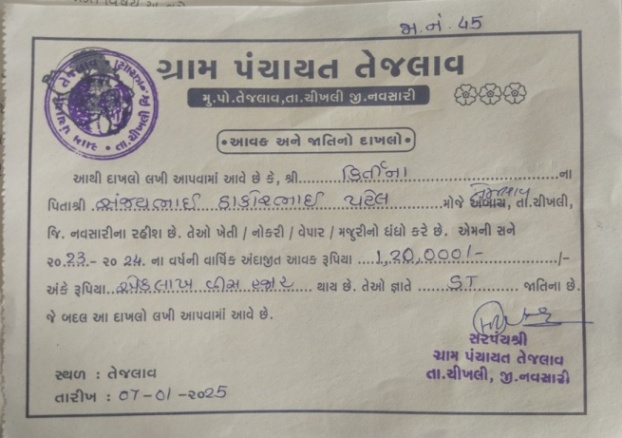 જા.નં. 45
ગ્રામ પંચાયત તેજલાવ
મુ.પો.તેજલાવ,તા.ચીખલી જી.નવસારી
• આવક અને જાતિનો દાખલો •
આથી દાખલો લખી આપવામાં આવે છે કે, શ્રી........કિર્તીના........ના
પિતાશ્રી સંજયભાઈ ઠાકોરભાઈ પટેલ મોજે તેજલાવ, તા.ચીખલી,
જિ. નવસારીના રહીશ છે. તેઓ ખેતી / નોકરી / વેપાર / મજુરીનો ધંધો કરે છે. એમની સને
૨૦.23.- ૨૦ 24. ના વર્ષની વાર્ષિક અંદાજીત આવક રૂપિયા ...1,20,000/-........../-
અંકે રૂપિયા..એકલાખ વીસ હજાર ...... થાય છે. તેઓ જ્ઞાતે ......ST........ જાતિના છે.
જે બદલ આ દાખલો લખી આપવામાં આવે છે.
સરપંચશ્રી
ગ્રામ પંચાયત તેજલાવ
તા.ચીખલી, જી.નવસારી
સ્થળ : તેજલાવ
તારીખ : 07-01-2025